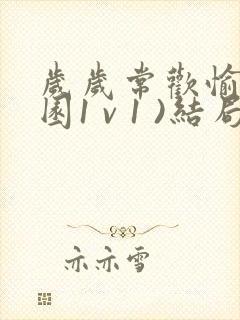 歲歲常歡愉
園1v1)結局
亦亦雪